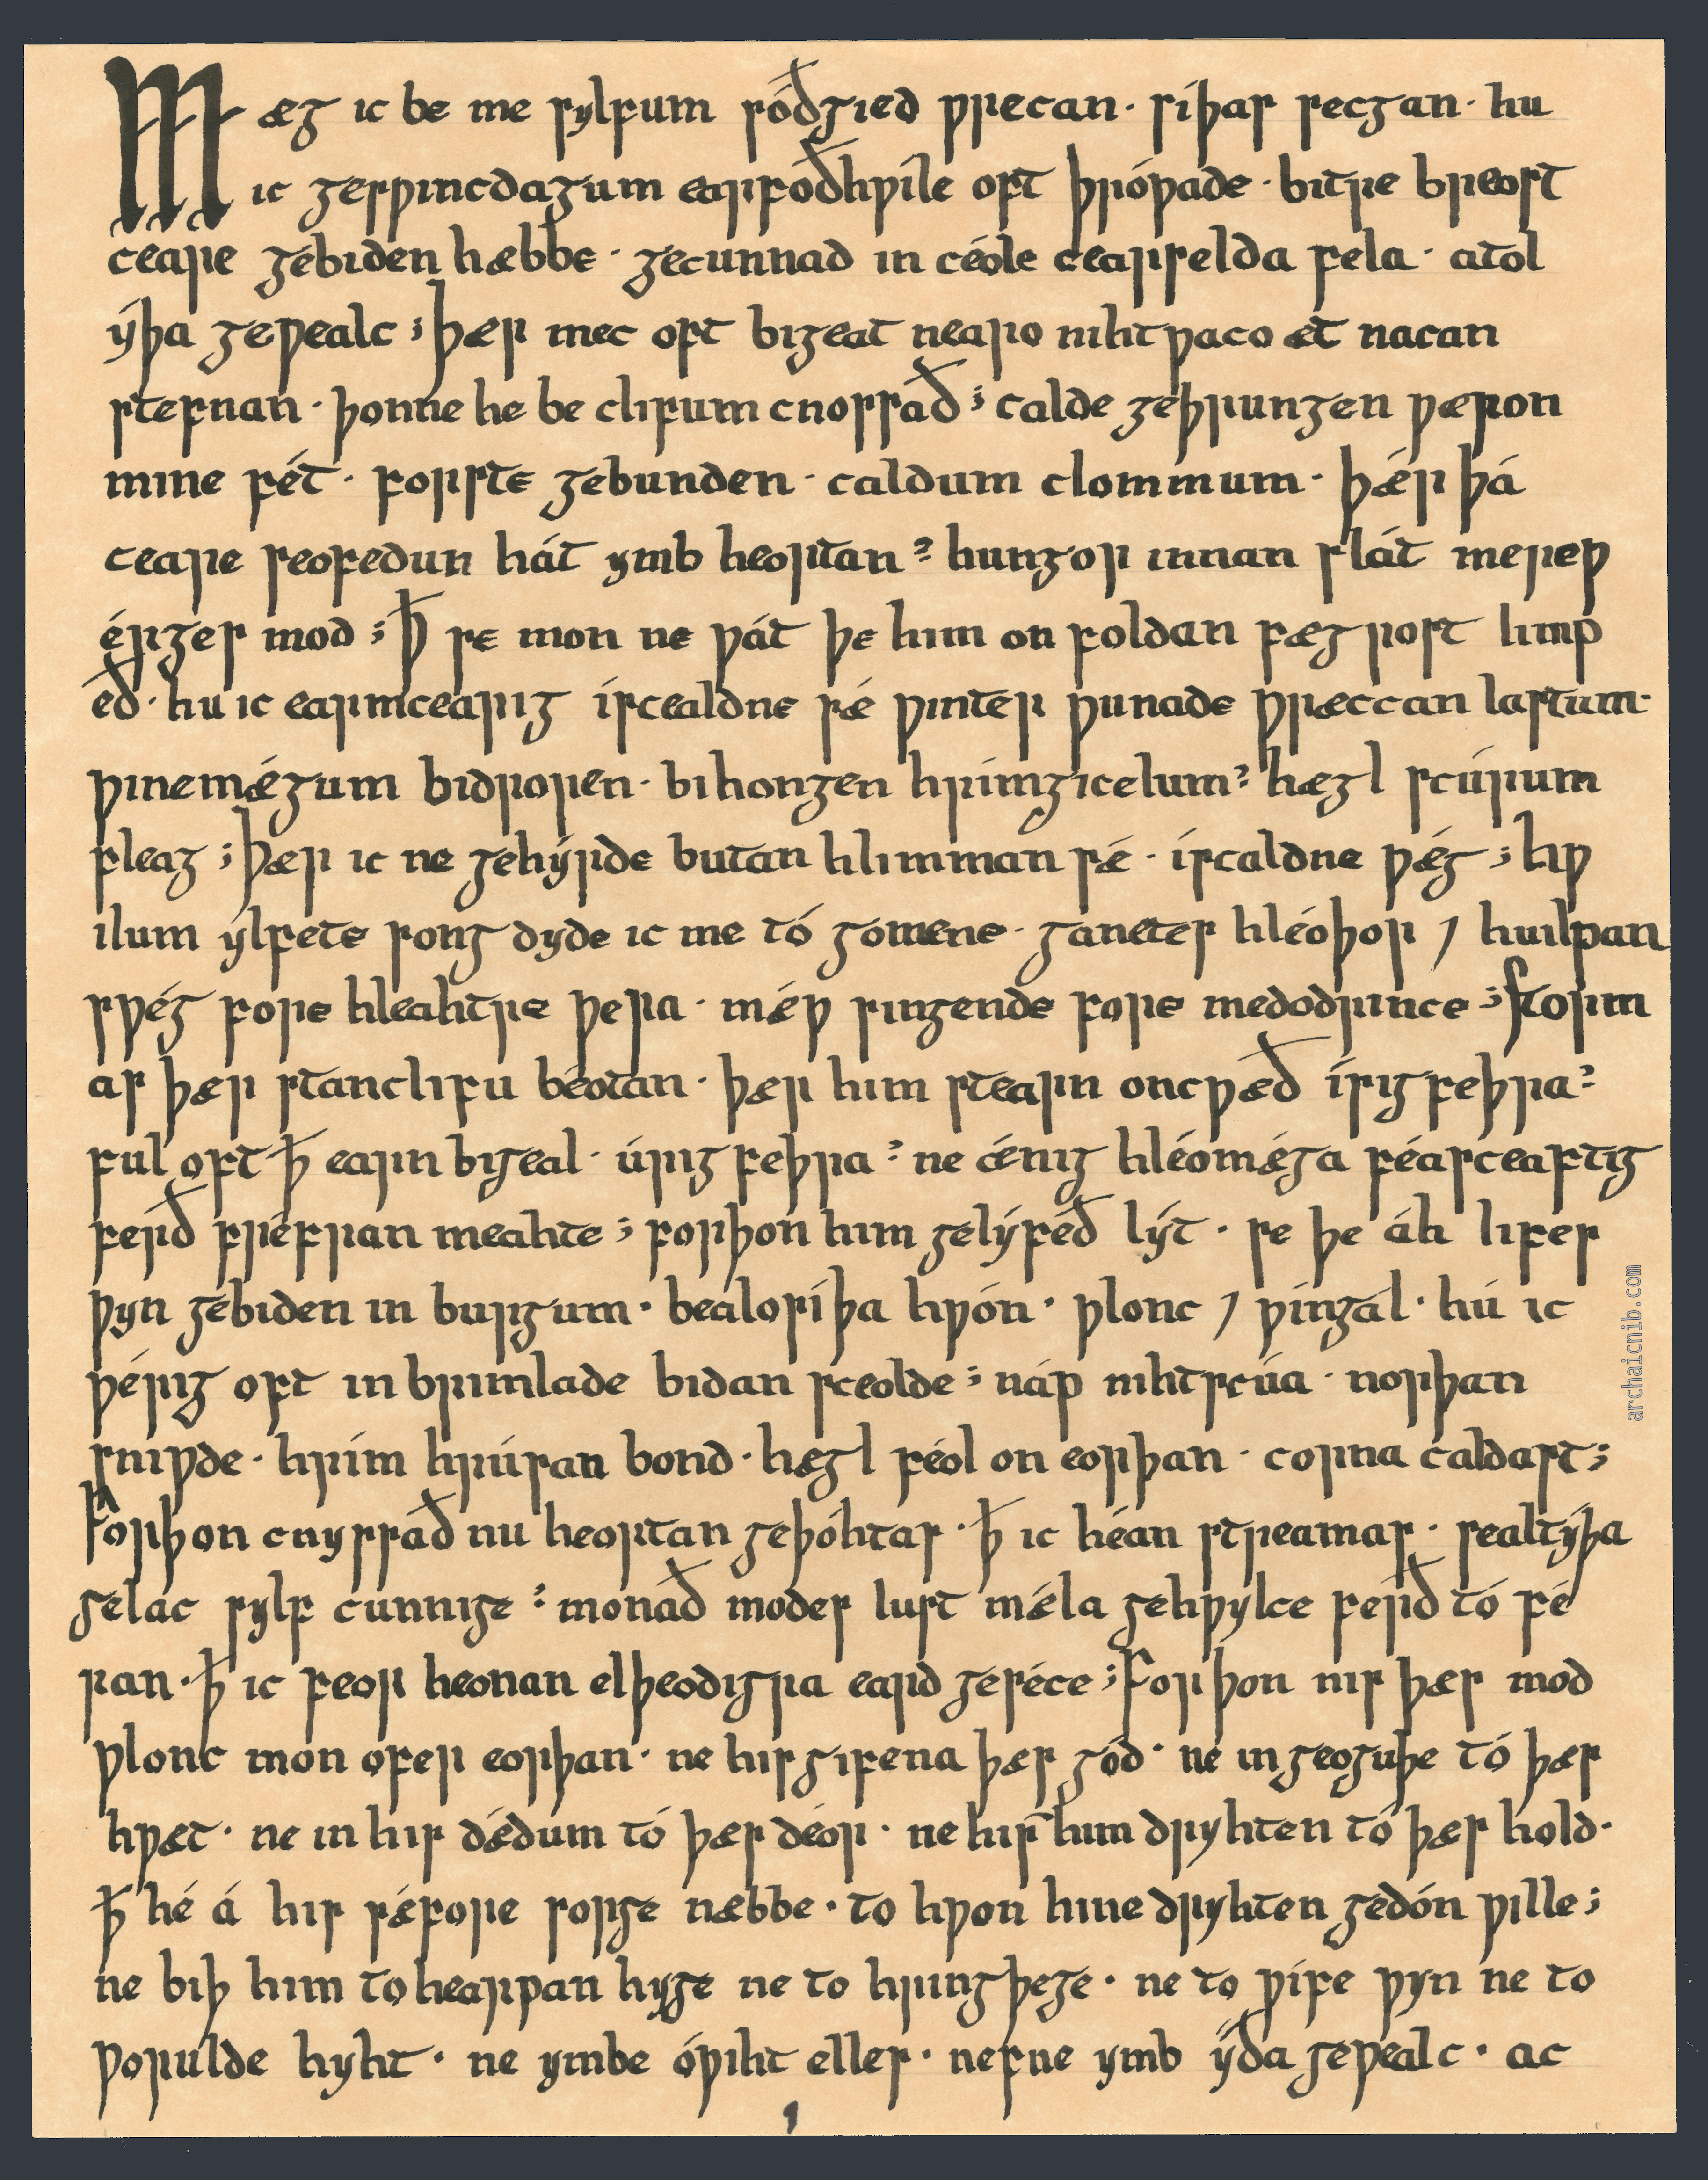 Mæg ic be me sylfum sóðgied ƿrecan · síþas secgan · hu
ic gesƿincdagum earfoðhƿíle oft þróƿade · bitre breost
ceare gebiden hæbbe · gecunnad in céole cearselda fela · atol
ýþa geƿealc ; þær mec oft bigeat nearo nihtƿaco æt nacan
stefnan · þonne he be clifum cnossað ; calde geþrungen ƿæron
mine fét · forste gebunden · caldum clommum · þǽr þá
ceare seofedun hát ymb heortan ; hungor innan slát mereƿ
érges mod ; ꝥ se mon ne ƿát þe him on foldan fægrost limp
eð · hu ic earmcearig íscealdne sǽ ƿinter ƿunade ƿræccan lastum ·
ƿinemǽgum bidroren · bihongen hrímgicelum ; hægl scúrum
fleag ; þær ic ne gehýrde butan hlimman sǽ · íscaldne ƿǽg ; hƿ
ilum ylfete song dyde ic me tó gomene · ganetes hléoþor ⁊ huilpan
sƿég fore hleahtre ƿera · mǽƿ singende fore medodrince ; storm
as þær stanclifu béotan · þær him stearn oncƿæð ísig feþra ;
ful oft ꝥ earn bigeal · úrig feþra ; ne ǽnig hléomǽga féasceaftig
ferð fréfran meahte ; forþon him gelýfeð lýt · se þe áh lifes
ƿyn gebiden in burgum · bealosíþa hƿón · ƿlonc ⁊ ƿíngal · hú ic
ƿérig oft in brimlade bidan sceolde ; náp nihtscúa · norþan
sniƿde · hrím hrúsan bond · hægl féol on eorþan · corna caldast ;
Forþon cnyssað nu heortan geþóhtas · ꝥ ic héan streamas · sealtýþa
gelác sylf cunnige ; monað modes lust mǽla gehƿylce ferð tó fé
ran · ꝥ ic feor heonan elþeodigra eard geséce ; Forþon nis þæs mod
ƿlonc mon ofer eorþan · ne his gifena þæs gód · ne in geoguþe tó þæs
hƿæt · ne in his dǽdum tó þæs déor · ne his him dryhten tó þæs hold ·
ꝥ hé á his sǽfore sorge næbbe · to hƿon hine dryhten gedón ƿille ;
ne biþ him to hearpan hyge ne to hringþege · ne to ƿífe ƿyn ne to
ƿorulde hyht · ne ymbe óƿiht elles · nefne ymb ýða geƿealc · ac
archaicnib.com